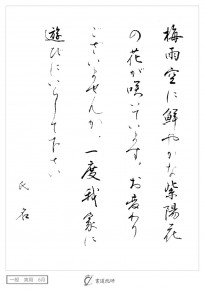 梅雨空に鮮やかな紫陽花
の花が咲いています。お変わり
ございませんか、一度我家に
遊びにいらして下さい
氏名
一般 実用 6月
書道教師